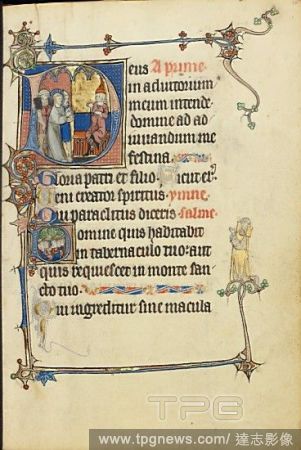 eus A prime
in aduitorium
meum intende
domine ad ad
iuuandum me
festina.
Gloria patri et filio. Sicut er
Veni creator spiritus ymne.
Qui paraclitus diceris salme
Domine quis habitabit
in tabernaculo tuo: aut
quis requiescet in monte san
cto tuo.
Qui ingreditur sine macula
TPG
www.tpgnews.com / 達志影像